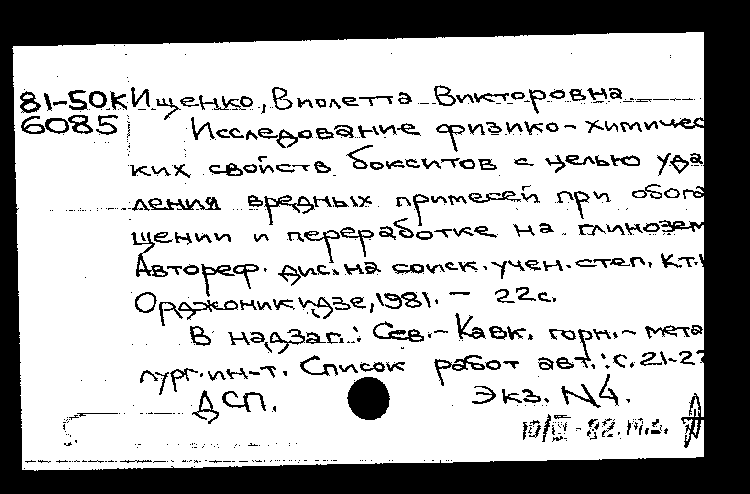 81-50К Ищенко, Виолетта Викторовна
6085 Исследование физико-химичес
ких свойств бокситов с целью уда
ления вредных примесей при обога
щении и переработке на глинозем
Автореф. дис. на соиск. учен. степ. к.т.н
Орджоникидзе, 1981. - 22 с.
В надзаг.: Сев.-Кавк. горн.-мета
лург. ин-т. Список работ авт.: с. 21-22
ДСП. Экз. N4.